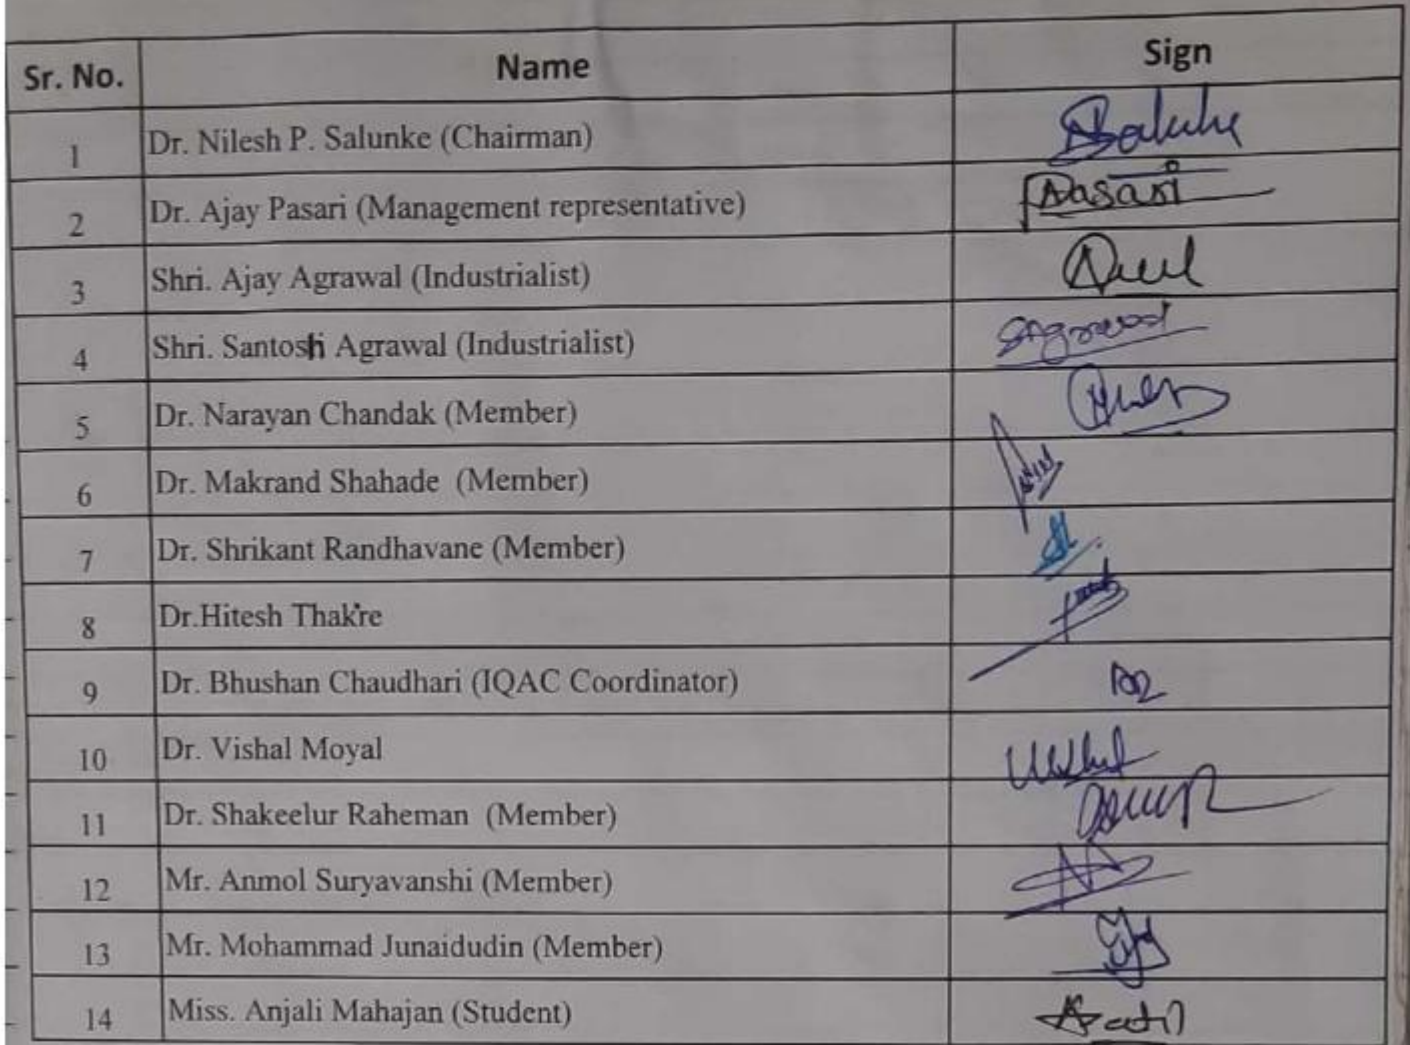 Sr. No. Name Sign
1 Dr. Nilesh P. Salunke (Chairman) Salunke
2 Dr. Ajay Pasari (Management representative) Pasari
3 Shri. Ajay Agrawal (Industrialist)
4 Shri. Santosh Agrawal (Industrialist) SAgrawal
5 Dr. Narayan Chandak (Member)
6 Dr. Makrand Shahade (Member)
7 Dr. Shrikant Randhavane (Member)
8 Dr.Hitesh Thakre
9 Dr. Bhushan Chaudhari (IQAC Coordinator)
10 Dr. Vishal Moyal
11 Dr. Shakeelur Raheman (Member)
12 Mr. Anmol Suryavanshi (Member)
13 Mr. Mohammad Junaidudin (Member)
14 Miss. Anjali Mahajan (Student)